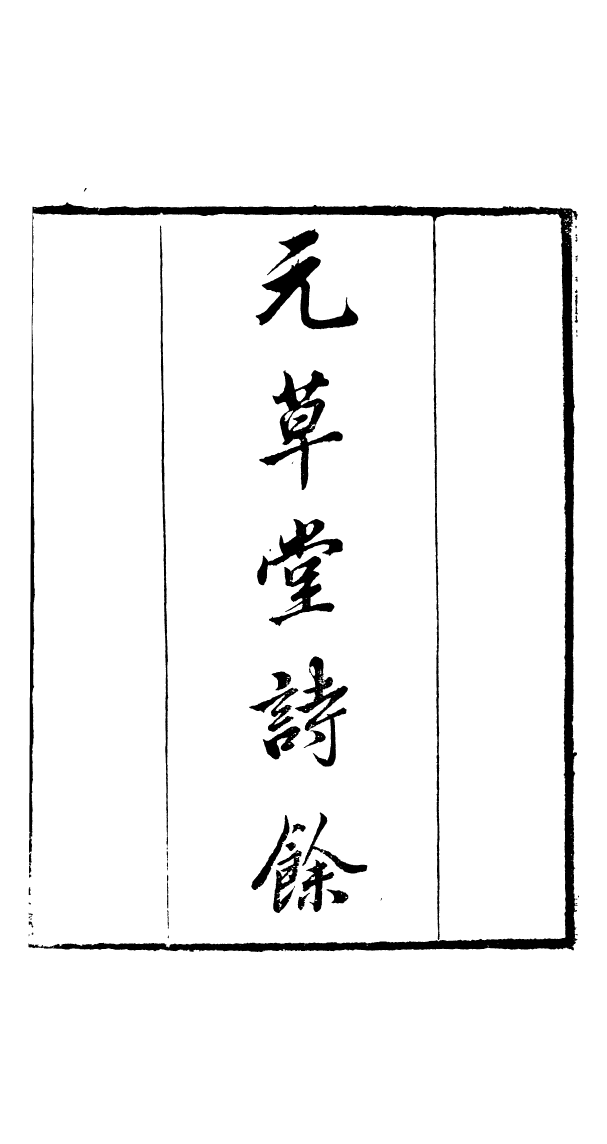 元草堂詩餘